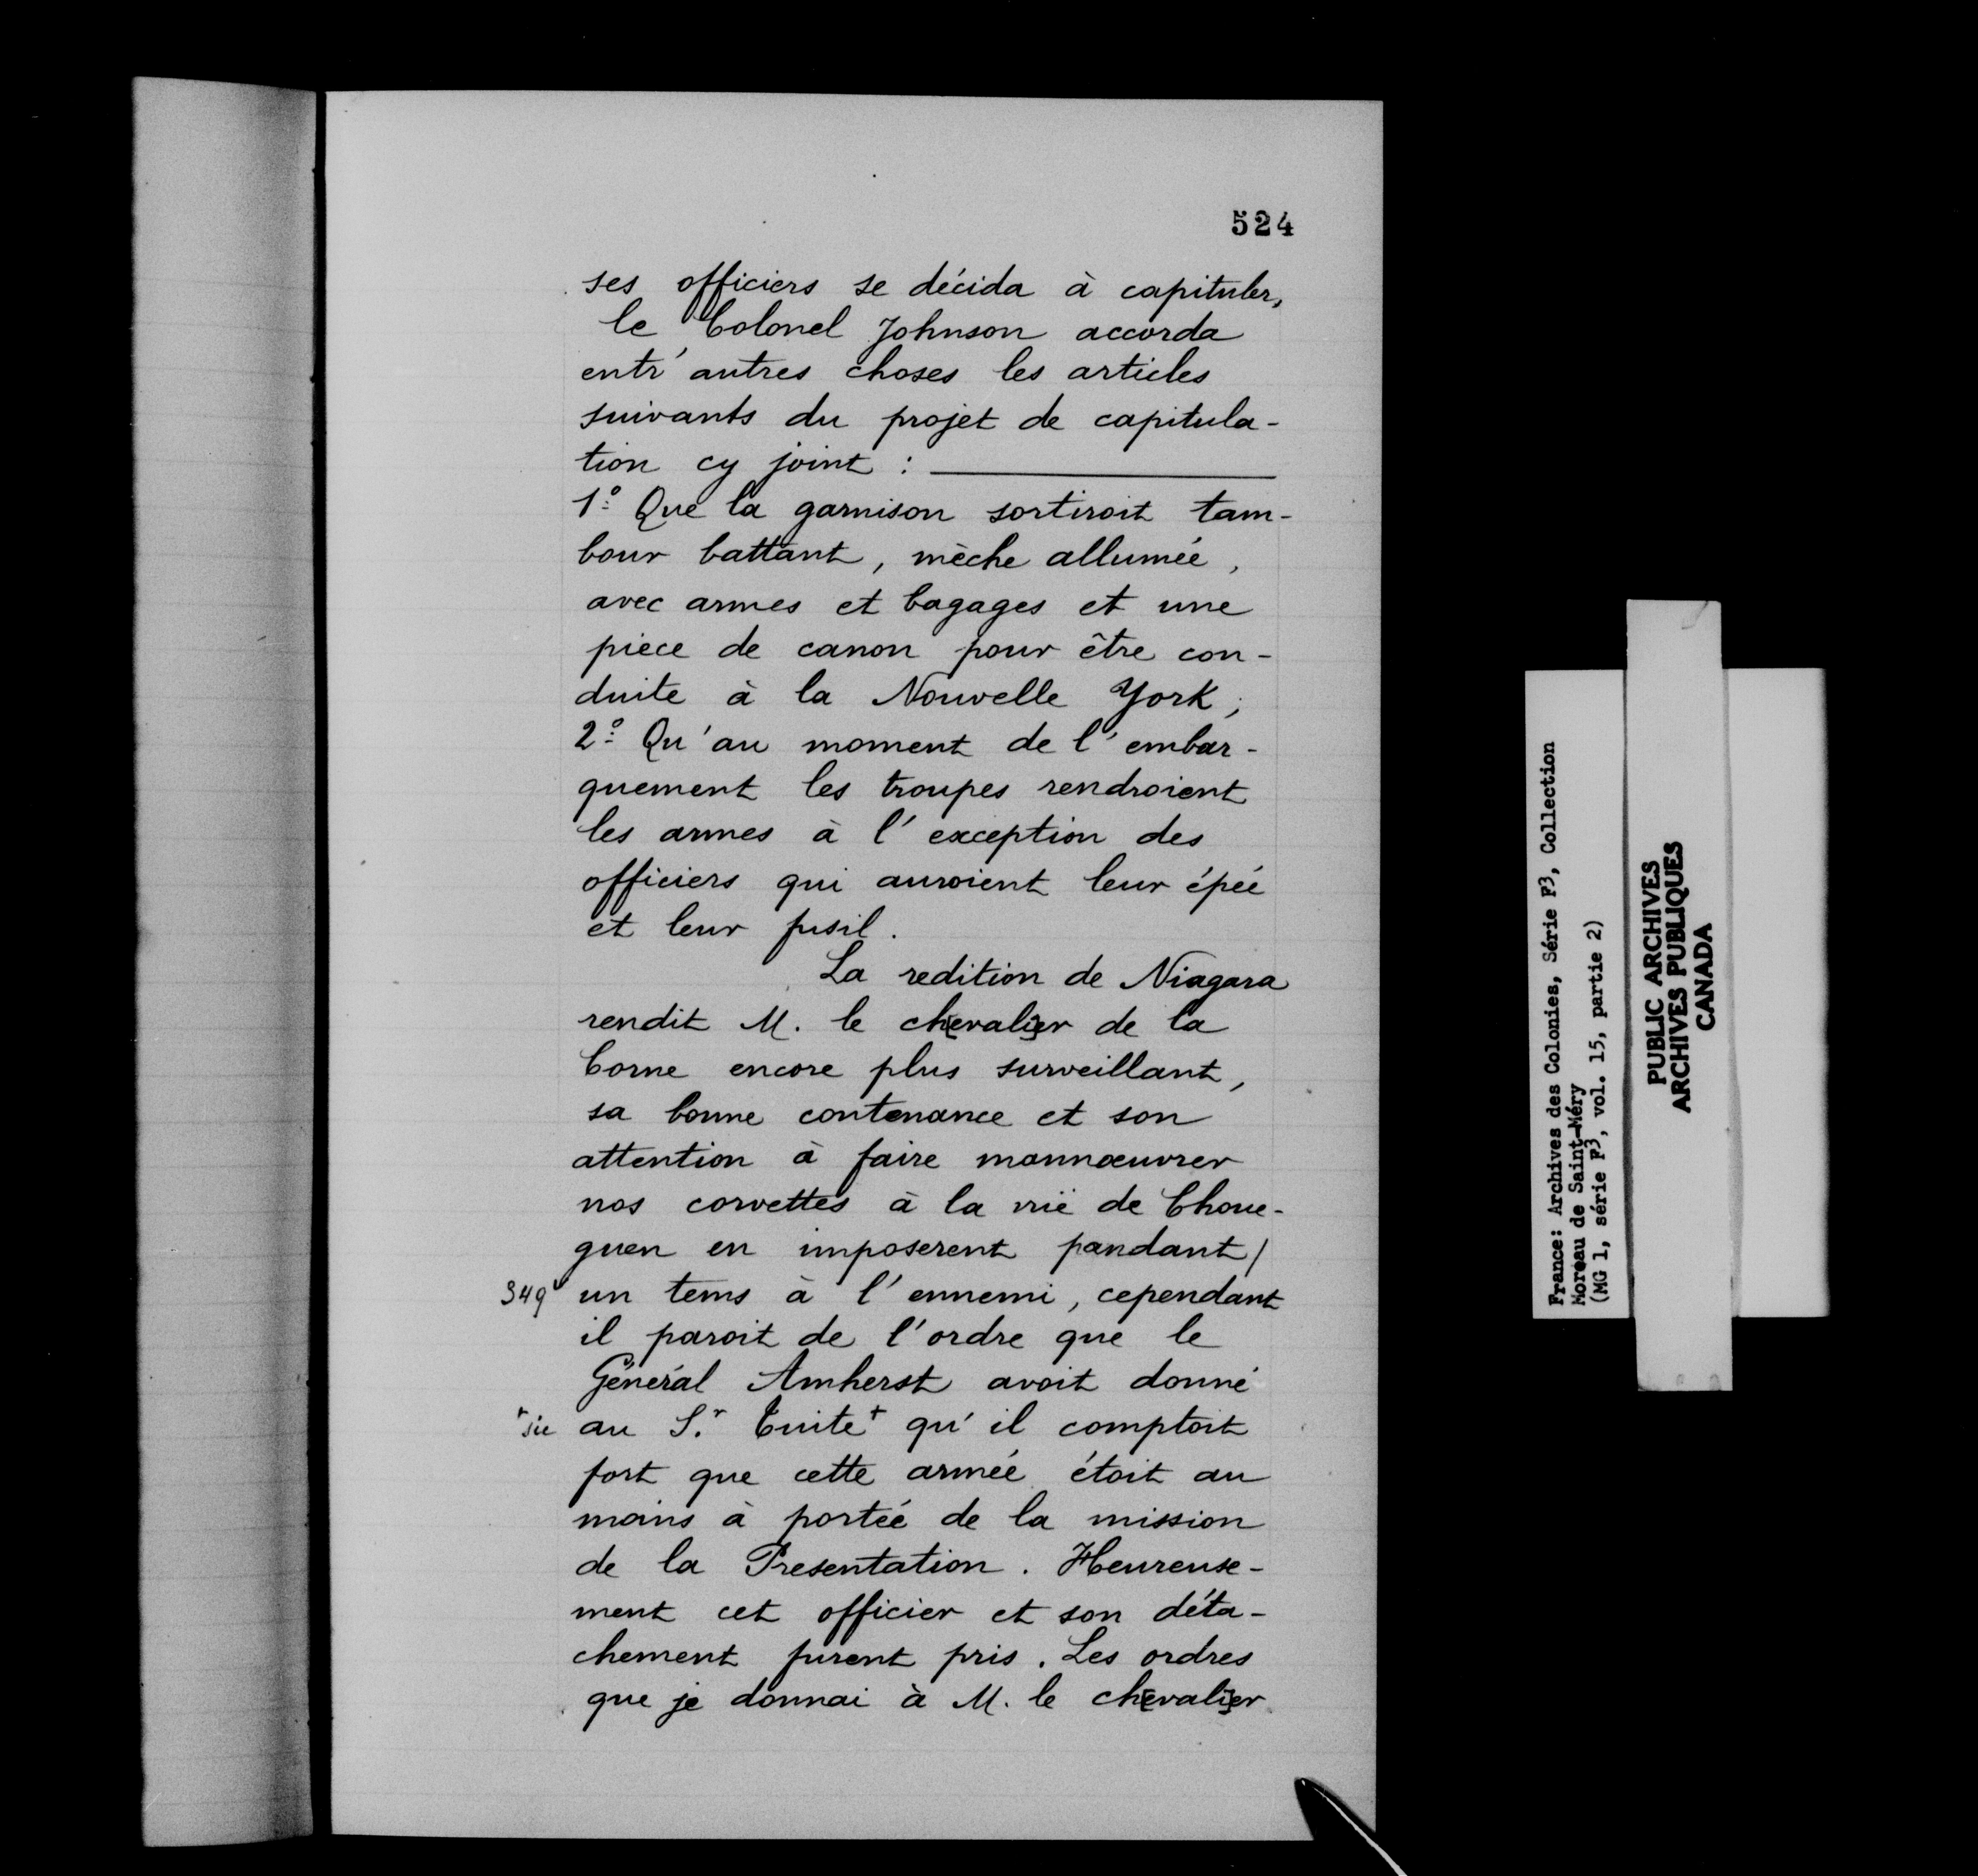 524
ses officiers se décida à capituler,
le Colonel Johnson accorda
entr'autres choses les articles
suivants du projet de capitula-
tion cy joint :
1º Que la garnison sortiroit tam-
bour battant, mèche allumée,
avec armes et bagages et une
piece de canon pour être con-
duite à la Nouvelle York;
2º Qu'au moment de l'embar-
quement les troupes rendroient
les armes à l'exception des
officiers qui auroient leur épée
et leur fusil.
La redition de Niagara
rendit M. le ch[evali]er de la
Corne encore plus surveillant,
sa bonne contenance et son
attention à faire mannœuvrer
nos corvettes à la vuë de Choue-
guen en imposerent pandant/
349v un tems à l'ennemi, cependant
il paroit de l'ordre que le
Général Amherst avoit donné
+sic au Sr. Tuite+ qu'il comptoit
fort que cette armée étoit au
moins à portée de la mission
de la Presentation. Heureuse-
ment cet officier et son déta-
chement furent pris. Les ordres
que je donnai à M. le ch[evali]er
France: Archives des Colonies, Série F3, Collection
Moreau de Saint-Méry
(MG 1, série F3, vol. 15, partie 2)
PUBLIC ARCHIVES
ARCHIVES PUBLIQUES
CANADA